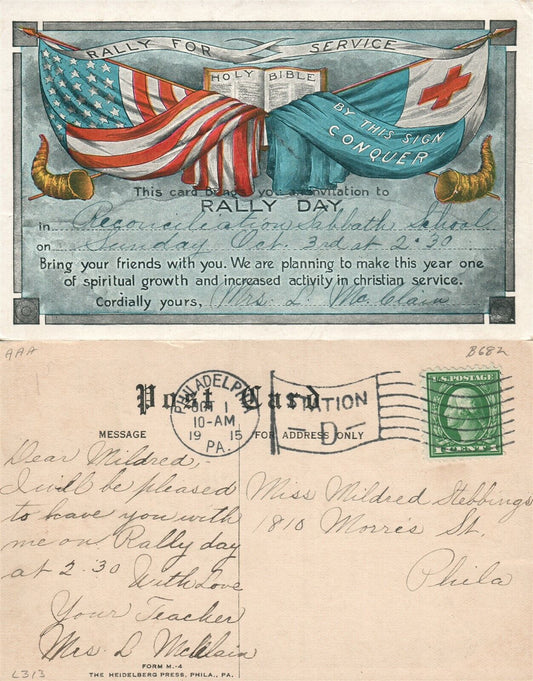 RALLY FOR SERVICE
HOLY BIBLE
BY THIS SIGN
CONQUER
This card brings you an invitation to
RALLY DAY
in Reconciliation Sabbath School
on Sunday Oct. 3rd at 2:30
Bring your friends with you. We are planning to make this year one
of spiritual growth and increased activity in christian service.
Cordially yours, Mrs. L. McClain
AAA
B682
Post Card
PHILADELPHIA
OCT 1
10-AM
1915
PA.
STATION
D
U.S. POSTAGE
1 CENT 1
MESSAGE
FOR ADDRESS ONLY
Dear Mildred,
I will be pleased
to have you with
me on Rally day
at 2.30 With Love
Your Teacher
Mrs L McClain
Miss Mildred Stebbings
1810 Morris St.
Phila
L313
FORM M.-4
THE HEIDELBERG PRESS, PHILA., PA.